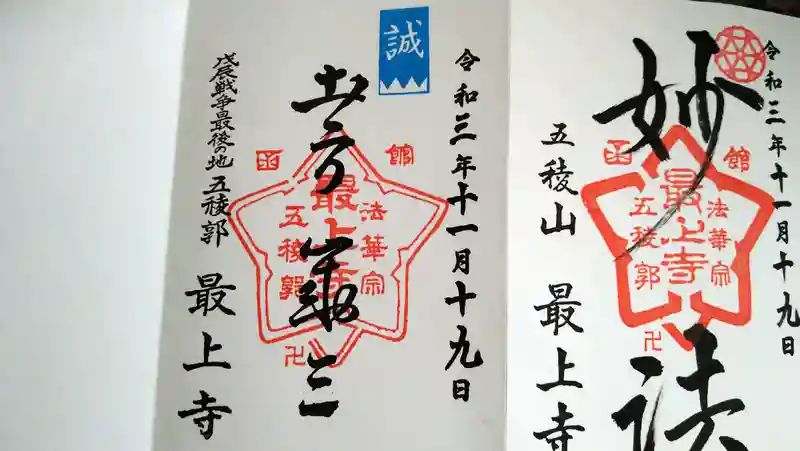 令和三年十一月十九日
妙法
函館
法華宗
最上寺
五稜郭
卍
五稜山 最上寺
令和三年十一月十九日
誠
土方歳三
函館
法華宗
最上寺
五稜郭
卍
戊辰戦争最後の地 五稜郭 最上寺